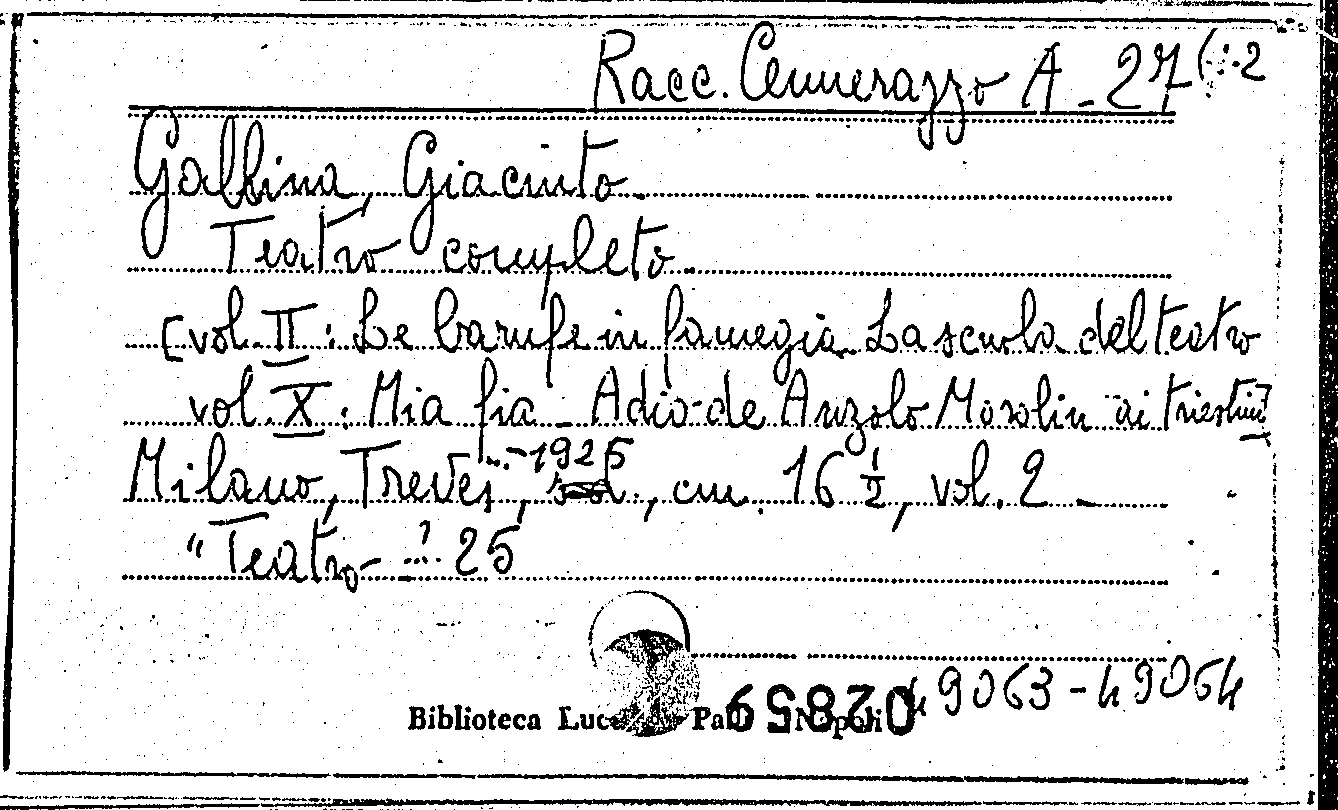 Racc. Cennerazzo A - 27 (1-2
Gallina, Giacinto
Teatro completo
[vol. II : Le barufe in famegia. La scuola del teatro
vol. X : Mia fia - Adio de Anzolo Morolin ai triestini]
Milano, Treves, 1925, cm. 16 1/2, vol. 2 -
"Teatro 25
49063-49064
Biblioteca Napoli 028659